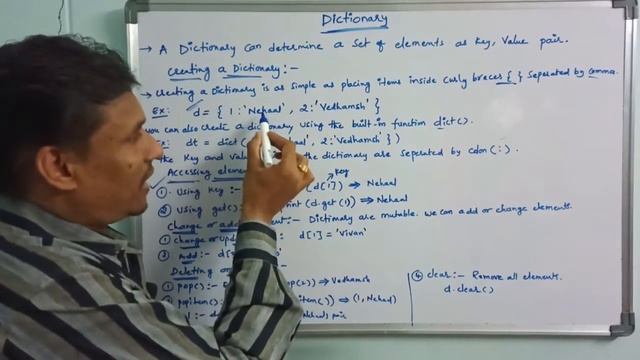 Dictionary
→ A Dictionary can determine a set of elements as key, value pair.
Creating a Dictionary :-
→ Creating a Dictionary is as simple as placing items inside curly braces { } seperated by comma.
Ex: d = { 1 : 'Nehaal', 2 : 'Vedhamsh' }
you can also create a dictionary using the built-in function dict().
dt = dict ( 2 : 'Vedhamsh' })
the key and the dictionary are seperated by colon ( : )
key
Accessing
① Using key :- (d[1]) ⇒ Nehaal
② Using get() (d.get (1)) ⇒ Nehaal
Change or :- Dictionary are mutable. we can add or change elements.
① change or : d[1] = 'Vivan'
② Add :-
Deleting
① pop() :- ⇒ Vedhamsh
② popitem() ⇒ (1, Nehaal)
pair
④ clear :- Remove all elements.
d.clear()